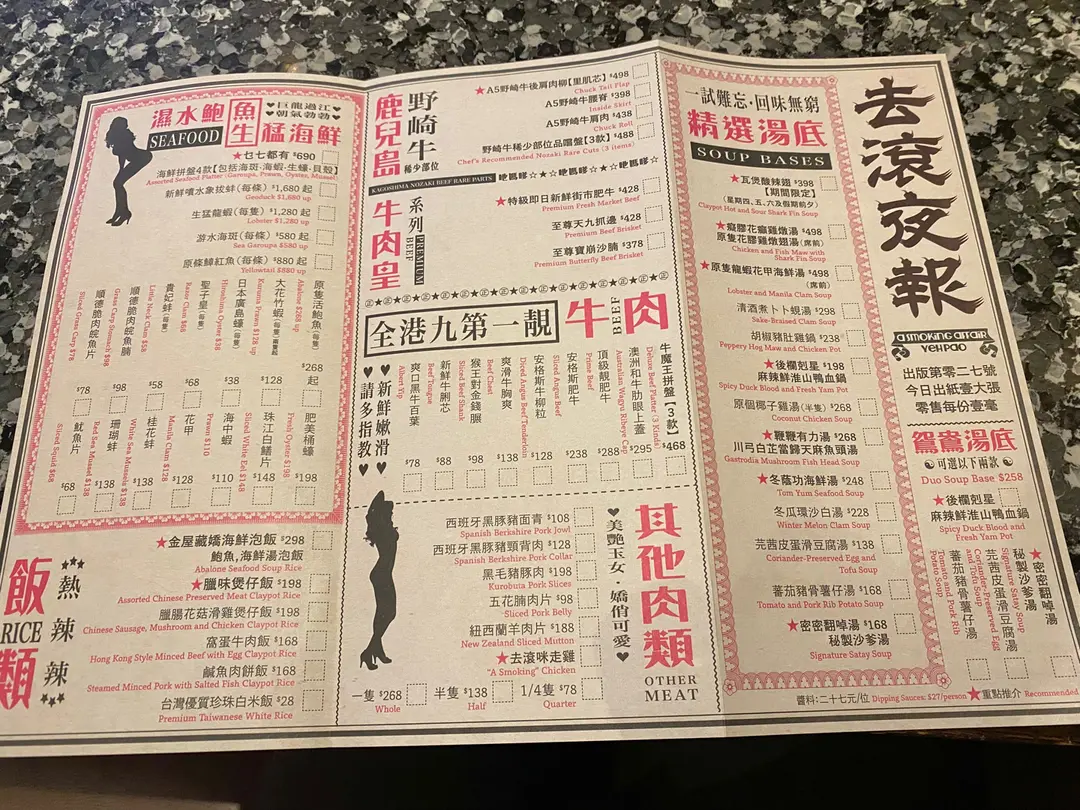 濕水鮑魚
生猛海鮮
SEAFOOD
♥巨龍過江♥
♥朝氣勃勃♥
★乜七都有 $690
海鮮拼盤4款【包括海斑·海蝦·生蠔·貝殼】
Assorted Seafood Platter (Garoupa, Prawn, Oyster, Mussel)
新鮮噴水象拔蚌(每條) $1,680 起
Geoduck $1,680 up
生猛龍蝦(每隻) $1,280 起
Lobster $1,280 up
游水海斑(每條) $580 起
Sea Garoupa $580 up
原條鰤魚(每條) $880 起
Yellowtail $880 up
原隻活鮑魚(每隻)
Abalone $268 up
$268 起
大花竹蝦(每隻)兩隻起
Kuruma Prawn $128 up
$128
日本廣島蠔(每隻)
Hiroshima Oyster $38
$38
聖子皇(每隻)
Razor Clam $68
$68
貴妃蚌(每隻)
Little Neck Clam $58
$58
順德脆肉皖魚腩
Grass Carp Stomach $98
$98
順德脆肉皖魚片
Sliced Grass Carp $78
$78
肥美桶蠔
Fresh Oyster $198
$198
珠江白鱔片
Sliced White Eel $148
$148
海中蝦
Prawn $110
$110
花甲
Manila Clam $128
$128
桂花蚌
White Sea Mussels $138
$138
珊瑚蚌
Red Sea Mussel $138
$138
魷魚片
Sliced Squid $68
$68
飯類
RICE
熱辣辣
★金屋藏嬌海鮮泡飯 $298
鮑魚,海鮮湯泡飯
Abalone Seafood Soup Rice
★臘味煲仔飯 $198
Assorted Chinese Preserved Meat Claypot Rice
臘腸花菇滑雞煲仔飯 $198
Chinese Sausage, Mushroom and Chicken Claypot Rice
窩蛋牛肉飯 $168
Hong Kong Style Minced Beef with Egg Claypot Rice
鹹魚肉餅飯 $168
Steamed Minced Pork with Salted Fish Claypot Rice
台灣優質珍珠白米飯 $28
Premium Taiwanese White Rice
鹿兒島野崎牛
稀少部位
KAGOSHIMA NOZAKI BEEF RARE PARTS
★A5野崎牛後肩肉柳【里肌芯】 $498
Chuck Tail Flap
A5野崎牛腰脊 $398
Inside Skirt
A5野崎牛肩肉 $438
Chuck Roll
野崎牛稀少部位品嚐盤【3款】 $488
Chef's Recommended Nozaki Rare Cuts (3 items)
牛肉皇系列
PREMIUM BEEF
★特級即日新鮮街市肥牛 $428
Premium Fresh Market Beef
至尊天九抓邊 $428
Premium Beef Brisket
至尊寶崩沙腩 $378
Premium Butterfly Beef Brisket
全港九第一靚
牛肉
BEEF
♥新鮮嫩滑♥
♥請多指教♥
牛魔王拼盤【3款】
Deluxe Beef Platter (3 Kinds)
$468
澳洲和牛肋眼上蓋
Australian Wagyu Ribeye Cap
$295
頂級靚肥牛
Prime Beef
$288
安格斯肥牛
Sliced Angus Beef
$238
安格斯牛柳粒
Diced Angus Beef Tenderloin
$128
爽滑牛胸爽
Beef Chest
$138
猴王對金錢腱
Sliced Beef Shank
$98
新鮮牛脷芯
Beef Tongue
$88
爽口黑牛百葉
Albert Yip
$78
其他肉類
OTHER MEAT
♥美艷玉女·嬌俏可愛♥
西班牙黑豚豬面青 $108
Spanish Berkshire Pork Jowl
西班牙黑豚豬頸背肉 $128
Spanish Berkshire Pork Collar
黑毛豬豚肉 $198
Kurobuta Pork Slices
五花腩肉片 $98
Sliced Pork Belly
紐西蘭羊肉片 $188
New Zealand Sliced Mutton
★去滾咪走雞
"A Smoking" Chicken
一隻 $268 半隻 $138 1/4隻 $78
Whole Half Quarter
一試難忘·回味無窮
精選湯底
SOUP BASES
★瓦煲酸辣翅 $398
【期間限定】
(星期四、五、六及假期前夕)
Claypot Hot and Sour Shark Fin Soup
★癲膠花癲雞燉湯 $498
原隻花膠雞燉翅湯(席前)
Chicken and Fish Maw with
Shark Fin Soup
★原隻龍蝦花甲海鮮湯 $498
(席前)
Lobster and Manila Clam Soup
清酒煮卜卜蜆湯 $298
Sake-Braised Clam Soup
胡椒豬肚雞鍋 $238
Peppery Hog Maw and Chicken Pot
★後欄剋星 $198
麻辣鮮淮山鴨血鍋
Spicy Duck Blood and Fresh Yam Pot
原個椰子雞湯(半隻) $268
Coconut Chicken Soup
★鞭鞭有力湯 $268
川弓白芷當歸天麻魚頭湯
Gastrodia Mushroom Fish Head Soup
★冬蔭功海鮮湯 $248
Tom Yum Seafood Soup
冬瓜環沙白湯 $228
Winter Melon Clam Soup
芫茜皮蛋滑豆腐湯 $138
Coriander-Preserved Egg and
Tofu Soup
蕃茄豬骨薯仔湯 $168
Tomato and Pork Rib Potato Soup
★密密翻啅湯 $168
秘製沙爹湯
Signature Satay Soup
醬料:二十七元/位 Dipping Sauces: $27/person ★重點推介 Recommended
去滾夜報
a SMOKING AFFAIR
YEH PAO
出版第零二七號
今日出紙壹大張
零售每份壹毫
鴛鴦湯底
可選以下兩款
Duo Soup Base $258
★後欄剋星
麻辣鮮淮山鴨血鍋
Spicy Duck Blood and
Fresh Yam Pot
★密密翻啅湯
秘製沙爹湯
Signature Satay Soup
芫茜皮蛋滑豆腐湯
Coriander-Preserved Egg
and Tofu Soup
蕃茄豬骨薯仔湯
Tomato and Pork Rib
Potato Soup